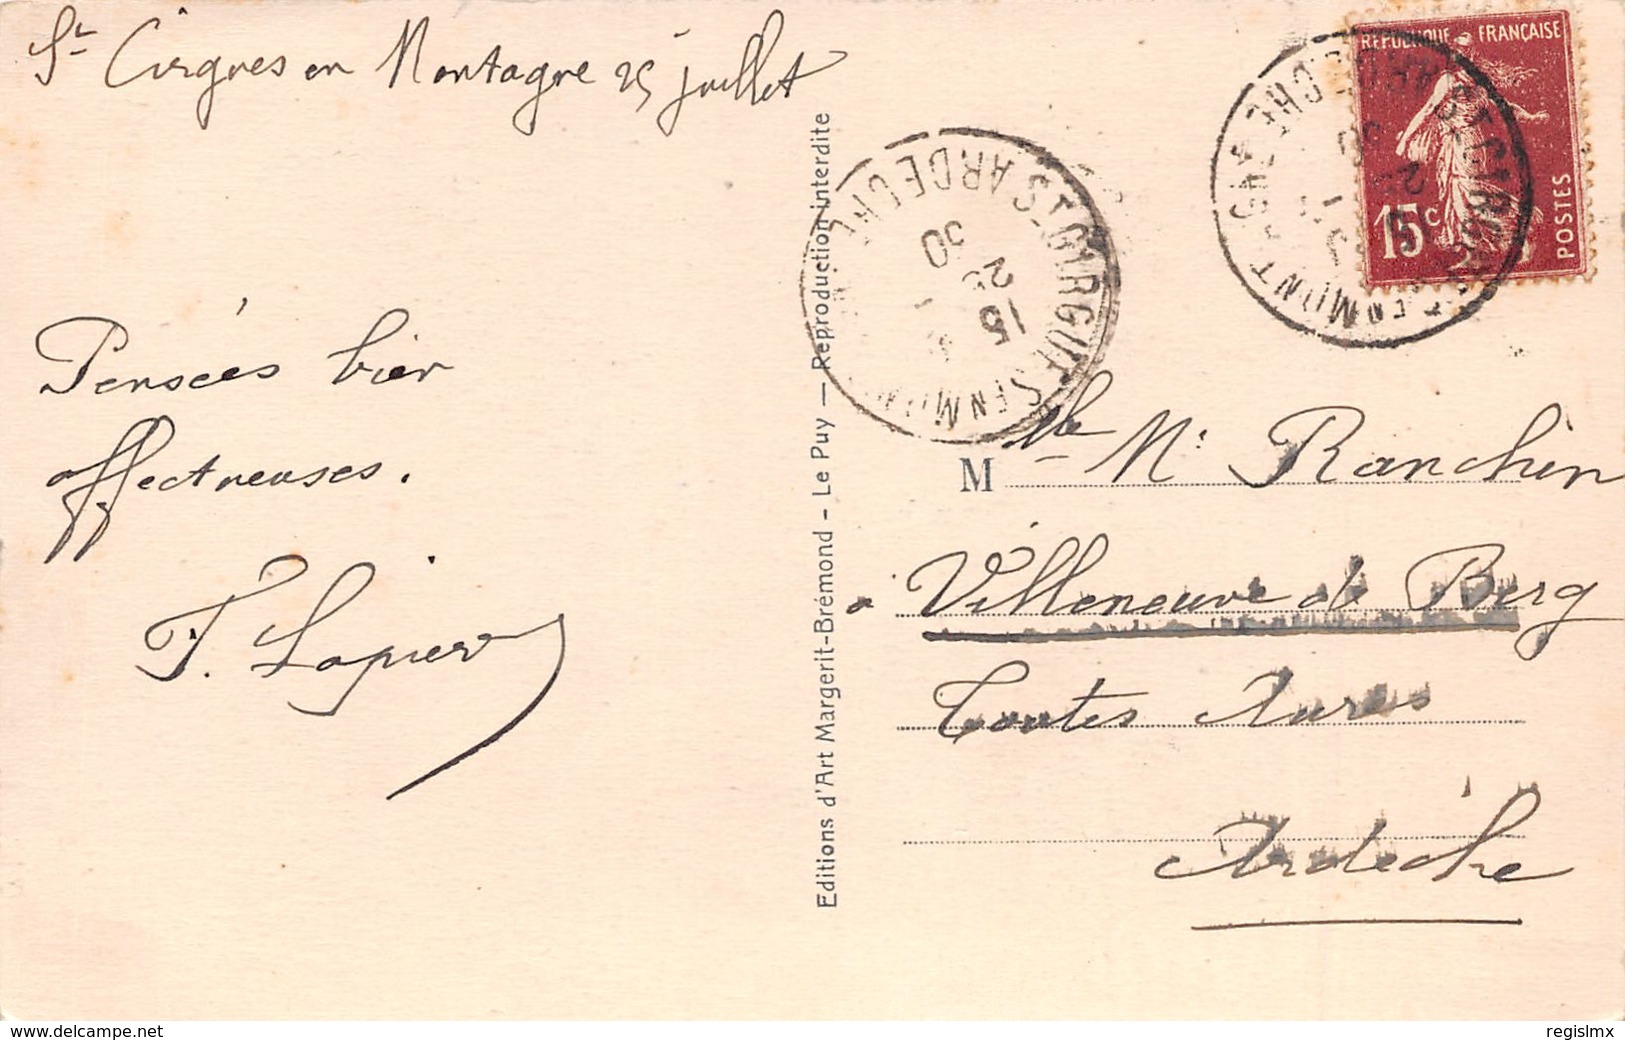 St Cirgues en Montagne 25 juillet
Pensées bien
affectueuses.
F. Lapierr
Editions d'Art Margerit-Brémond - Le Puy — Reproduction interdite
ST CIRGUES EN MONT
ARDECHE
15
30
REPUBLIQUE FRANÇAISE
15c
POSTES
M Mlle M. Ranchin
à Villeneuve de Berg
Toutes Aures
Ardèche
www.delcampe.net
regislmx